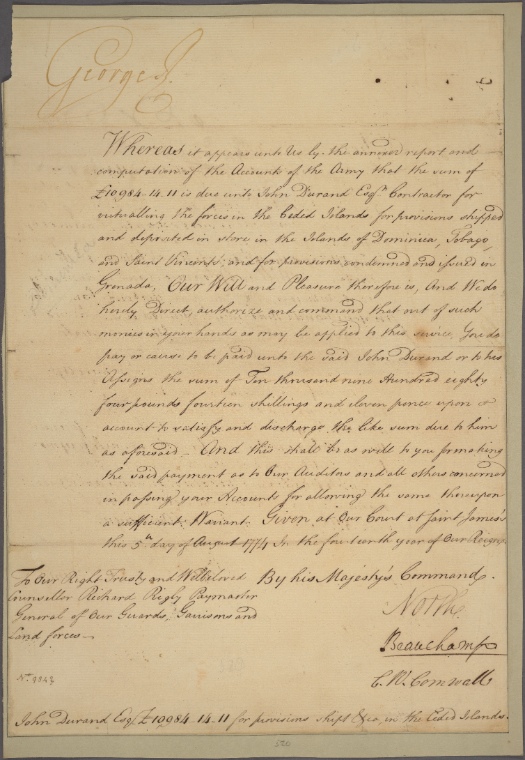 George R
Whereas it appears unto Us by the annexed report and
computation of the Accounts of the Army that the sum of
£10984-14.11 is due unto John Durand Esqr. Contractor for
victualling the forces in the Ceded Islands, for provisions shipped
and deposited in store in the Islands of Dominica, Tobago,
and Saint Vincents, and for provisions condemned and issued in
Grenada, Our Will and Pleasure therefore is, And We do
hereby Direct, authorize and command that out of such
monies in your hands as may be applied to this service, You do
pay or cause to be paid unto the said John Durand or to his
Assigns the sum of Ten thousand nine Hundred eighty
four pounds fourteen shillings and eleven pence upon
account to satisfy and discharge the like sum due to him
as aforesaid - And this shall be as well to you for making
the said payment as to Our Auditors and all others concerned
in passing your Accounts for allowing the same thereupon
a sufficient Warrant. Given at Our Court at Saint James's
this 5th day of August 1774 In the fourteenth year of Our Reign.
To Our Right Trusty and Welbeloved By his Majesty's Command.
Councellor Richard Rigby Paymaster
General of Our Guards, Garisons and
Land forces -
North
Beauchamp
C. W. Cornwall
No.
John Durand Esqr £10984-14-11 for provisions shipt &ca, in the Ceded Islands.